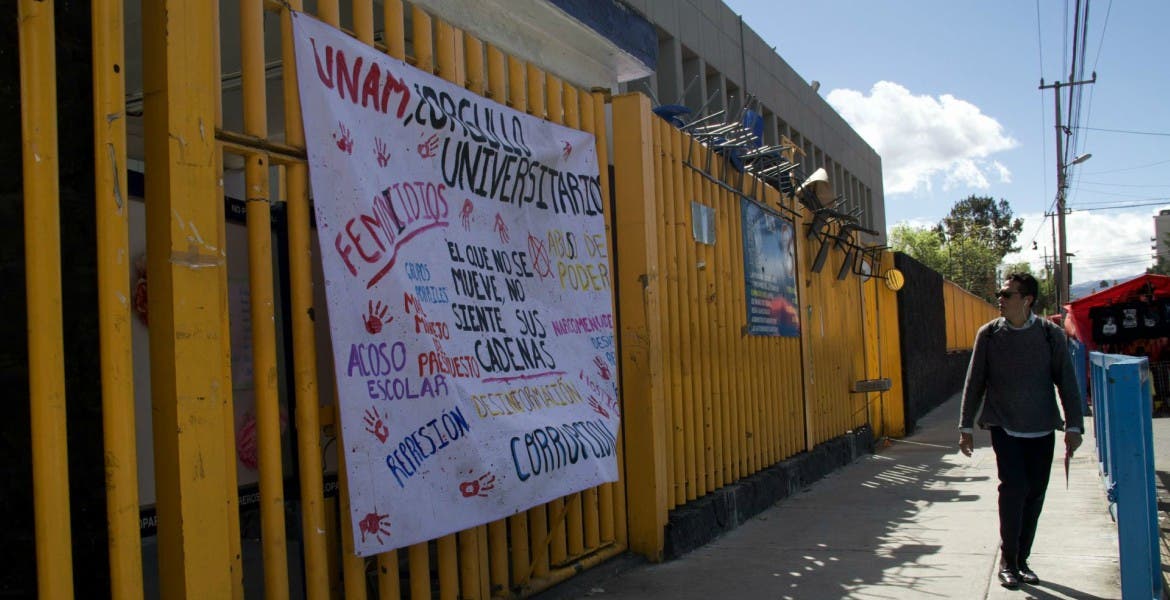 UNAM, ¿ORGULLO
UNIVERSITARIO?
FEMINICIDIOS
ABUSO DE
PODER
EL QUE NO SE
MUEVE, NO
SIENTE SUS
CADENAS
GRUPOS
PORRILES
MAL
MANEJO
DE
PRESUPUESTO
NARCOMENUDEO
ACOSO
ESCOLAR
DESINFORMACIÓN
REPRESIÓN
CORRUPCIÓN